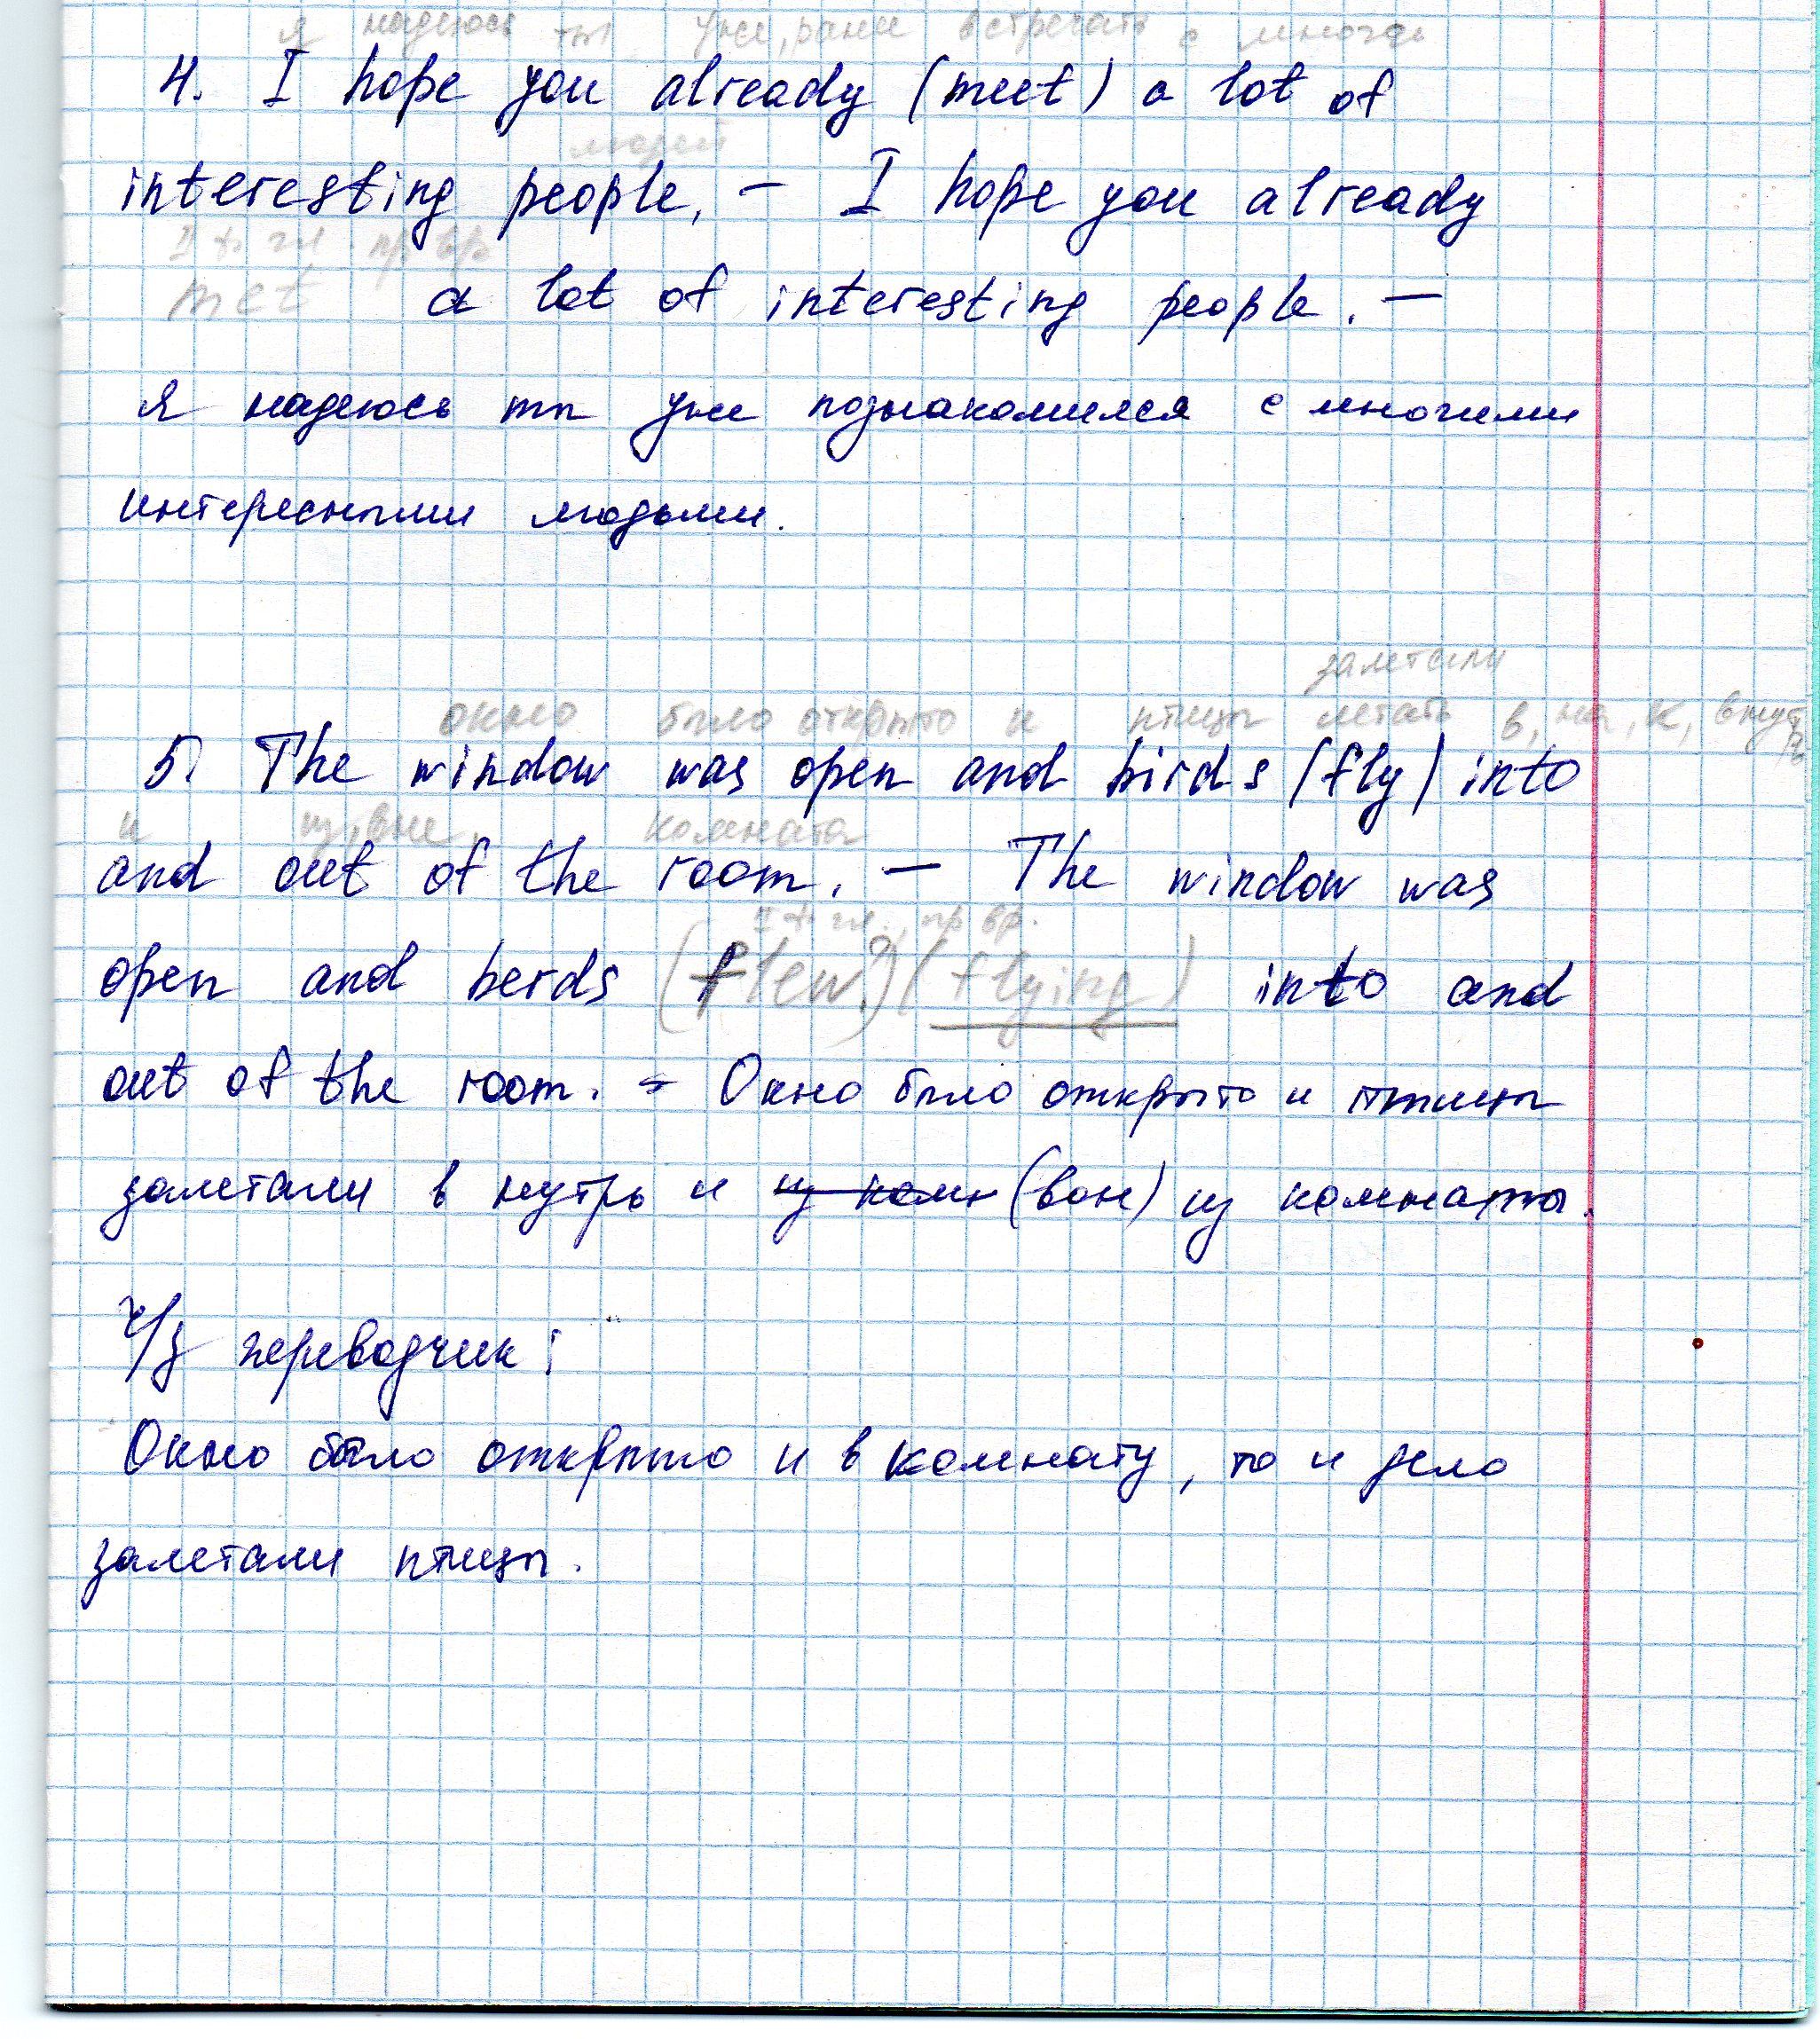 я надеюсь ты уже, ранее встречать с много
4. I hope you already (meet) a lot of
людей
interesting people. – I hope you already
II ф. гл. пр. вр.
met a lot of interesting people. –
Я надеюсь ты уже познакомился с многими
интересными людьми.
залетали
окно было открыто и птицы летать в, на, к, внутрь
5. The window was open and birds (fly) into
и из, вне, комната
and out of the room. – The window was
II ф. гл., пр вр.
open and berds (flew?) (flying) into and
out of the room. = Окно было открыто и птицы
залетали в нутрь и из комн (вон) из комнаты.
Ч/з переводчик:
Окно было открыто и в комнату, то и дело
залетали птицы.